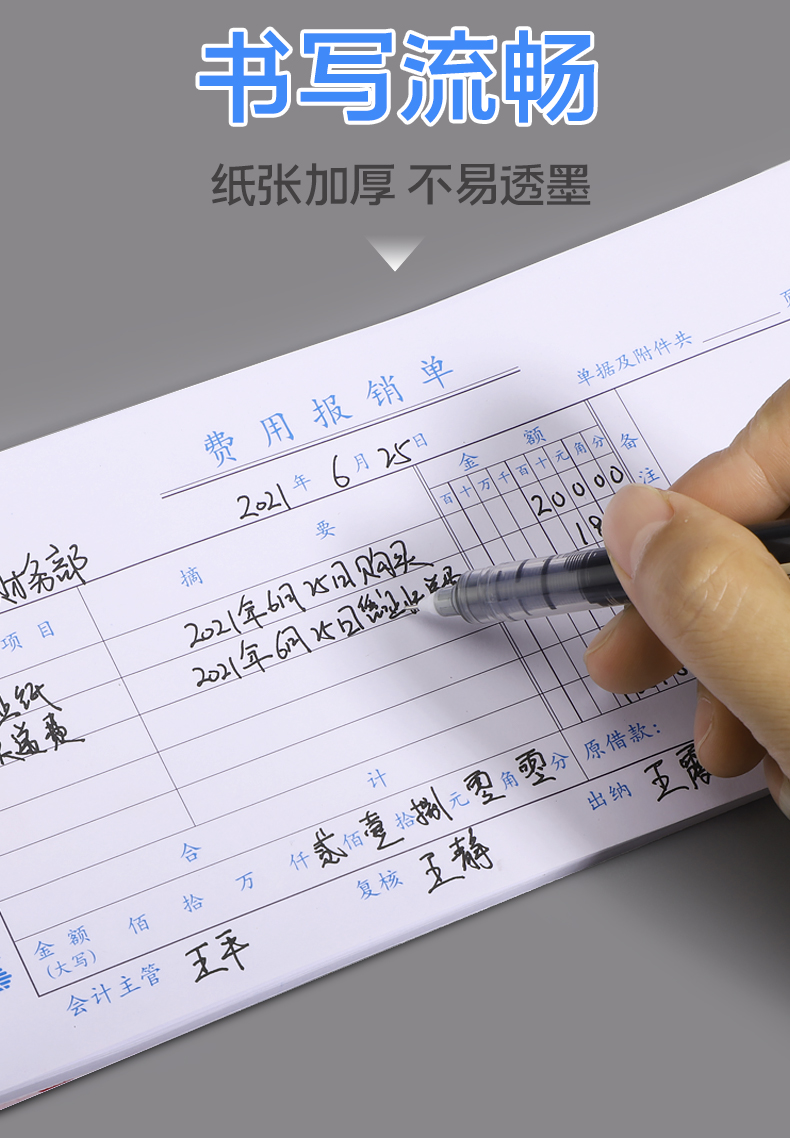 书写流畅
纸张加厚 不易透墨
费用报销单
单据及附件共
2021年6月25日
财务部
项目
摘要
金额
备注
百十万千百十元角分
20000
2021年6月25日购买
2021年6月25日
合计
金额(大写) 佰拾万仟贰佰壹拾捌元零角零分
原借款:
会计主管 王平
复核 王静
出纳 王霞